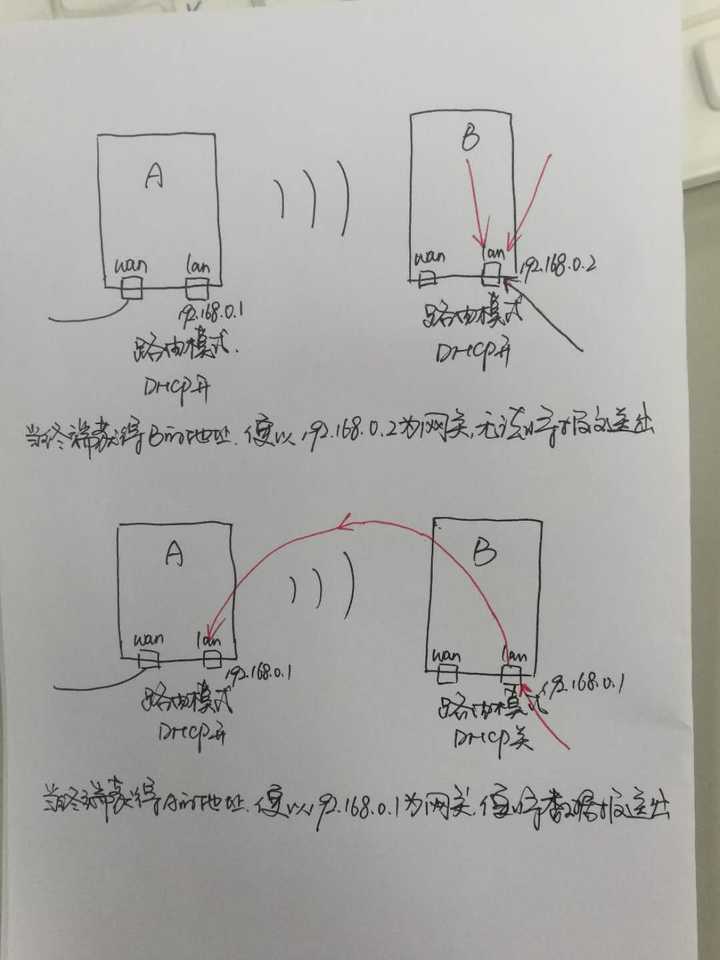 A
B
wan lan
wan lan
192.168.0.1
192.168.0.2
路由模式.
DHCP开
路由模式
DHCP开
当终端获得B的地址.便以192.168.0.2为网关,无法将报文送出
A
B
wan lan
wan lan
192.168.0.1
192.168.0.1
路由模式
DHCP开
路由模式
DHCP关
当终端获得A的地址.便以192.168.0.1为网关,便将数据报送出